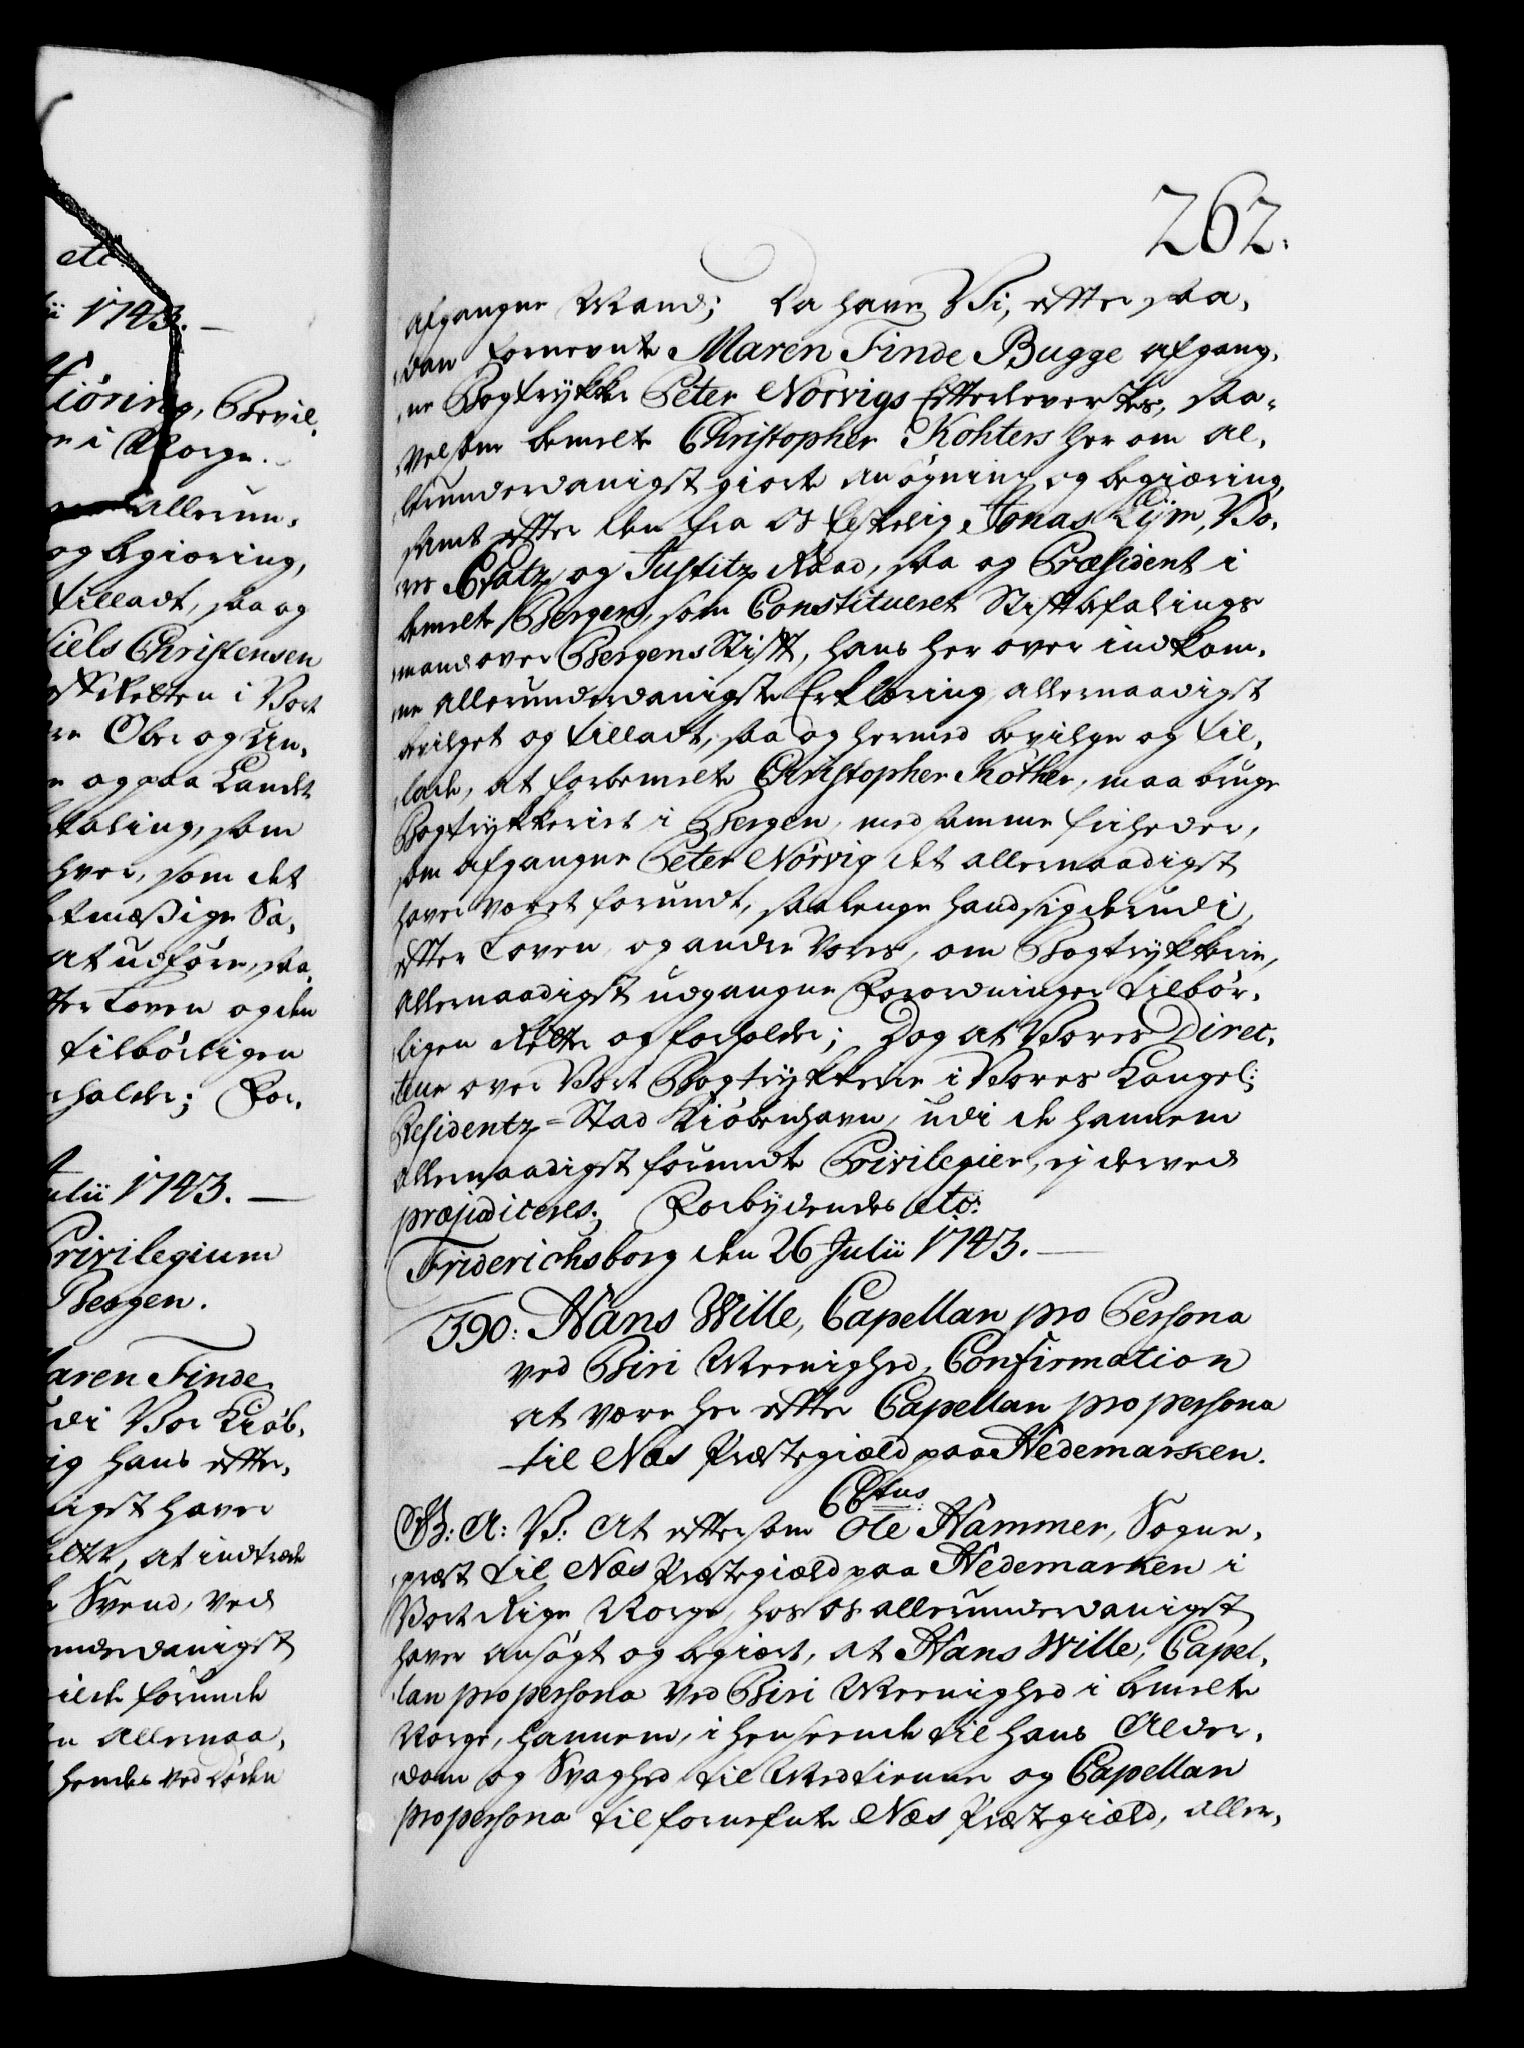 etc:
ii 1743. —
Kiöring, Bevil,
i Norge.
allerun,
og begiæring,
tilladt, saa og
Niels Christensen
Retten i Vort
Ober og Un,
og paa Landet
taling, som
hver, som det
retmæssige Sa,
at udføre, saa,
fter Loven og den
tilbørligen
rholde; For,
Julii 1743. —
Privilegium
Bergen.
Maren Finde
udi Vor Kiøb,
ig hans efter,
nigst haver
at indtræde
Svend, ved
underdanigst
forunde
allernaa,
hendes ved Døden
262.
afgangne Mand; Da have Vi, efter saa,
dan fornevnte Maren Finde Bugge afgang,
ne Bogtrykker Peter Nörvigs Efterleverskes, saa,
velsom bemelte Christopher Kohters her om al,
lerunderdanigst giorte ansøgning og begiæring,
samt efter den fra Os Elskelig Jonas Lÿm, Vo,
res Etatz og Justitz Raad, saa og Præsident i
bemelte Bergen, som Constitueret Stiftbefalings
mand over Bergens Stift, hans her over indkom,
ne allerunderdanigste Erklæring allernaadigst
bevilget og tilladt, saa og hermed bevilge og til,
lade, at forbemelte Christopher Köther, maa bruge
Bogtrykkeriet i Bergen, med samme friheder,
som afgangne Peter Nörvig det allernaadigst
haver været forundt, saalenge hand sig derudi,
efter Loven og andre Vores, om Bogtrykkerie,
allernaadigst udgangne Forordninger tilbør,
ligen retter og forholder; Dog at Vores Direc,
teur over Vort Bogtrykkerie i Vores Kongel:
Residentz-Stad Kiøbenhavn, udi de hannem
allernaadigst forundte Privilegier, ej derved
præjudiceres; Forbydendes etc:
Friderichsborg den 26 Julii 1743. —
390: Hans Wille, Capellan pro Persona
ved Biri Meenighed, Confirmation
at være her efter Capellan pro persona
til Næs Præstegiæld paa Hedemarken.
C6tus.
G: A: V: At eftersom Ole Hammer, Sogne,
præst til Næs Præstegiæld paa Hedemarken i
Vort Rige Norge, hos Os allerunderdanigst
haver ansøgt og begiært, at Hans Wille, Capel,
lan pro persona ved Biri Meenighed i bemelte
Norge, hannem, i henseende til hans Alder,
dom og Svaghed til Medtiener og Capellan
pro persona til fornefnte Næs Præstegiæld, aller,